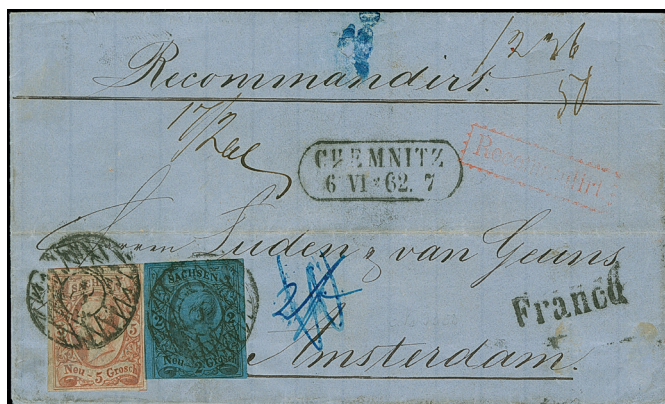 Recommandirt.
1236
50
CHEMNITZ
6 VI 62. 7
Recommandirt
Herrn Luden & van Geuns
Franco
Amsterdam.
SACHSEN
5
Neu - 5 Grosch
2
Neu 2 Grosch